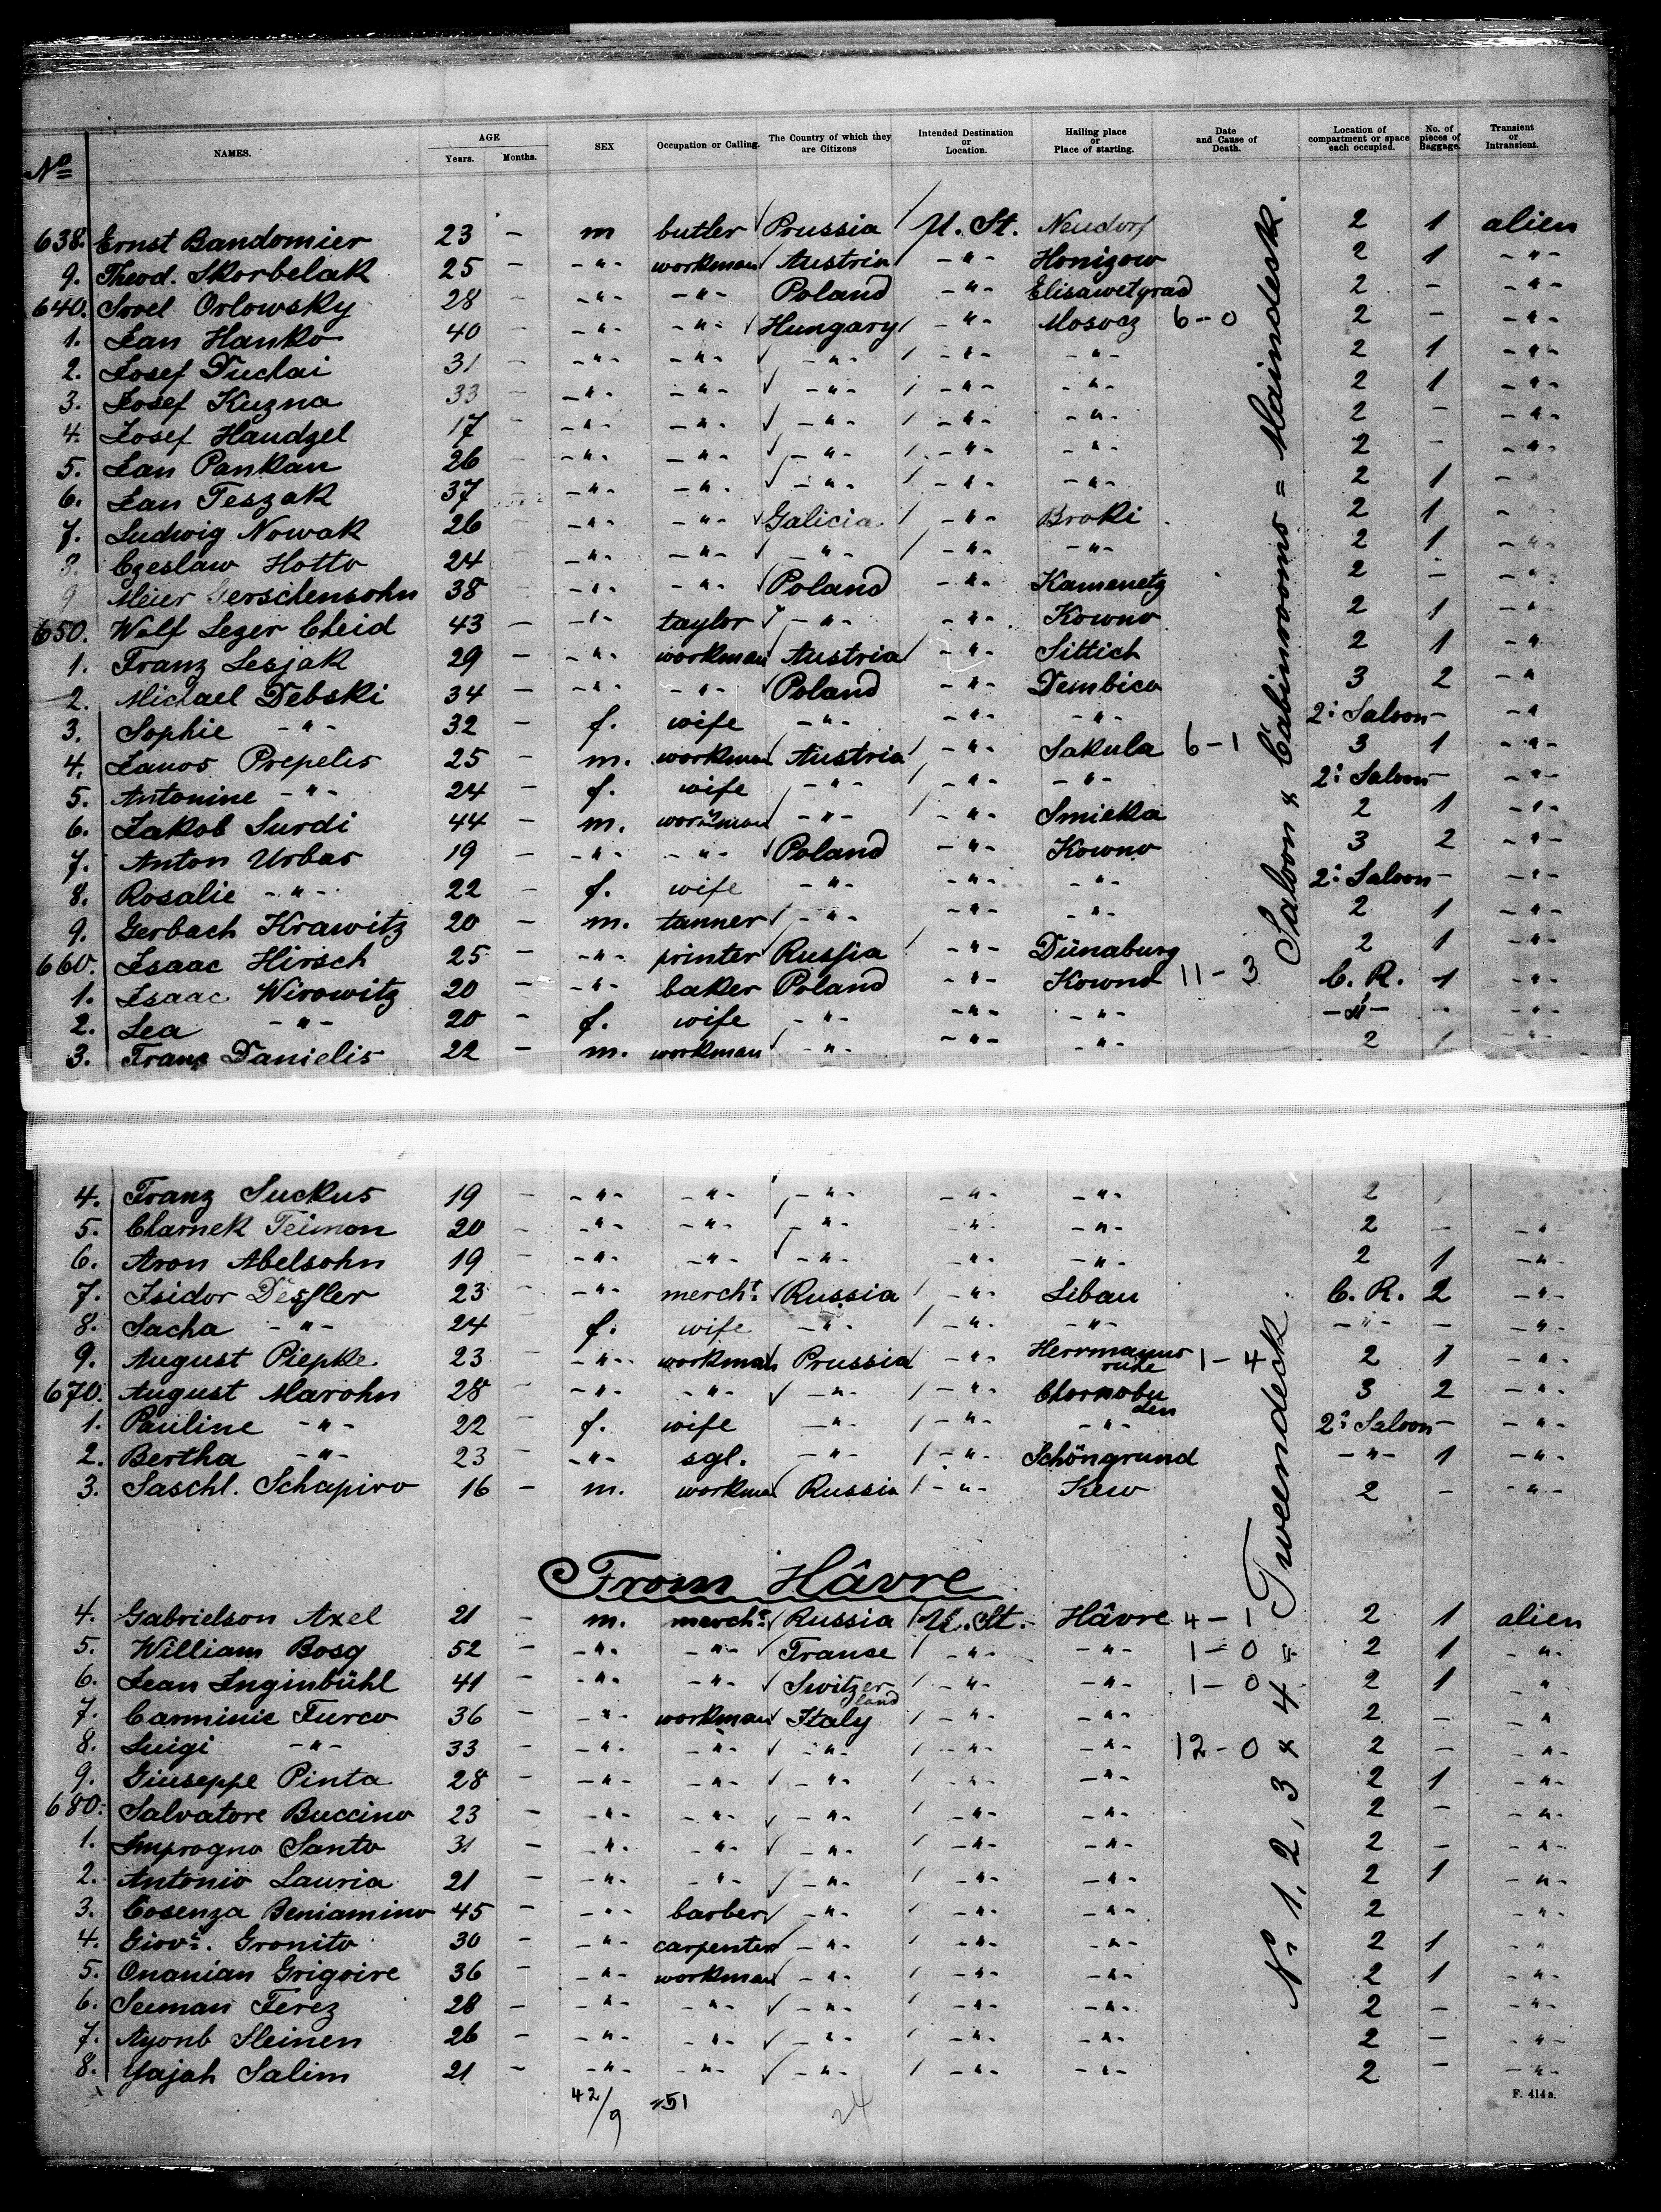 No NAMES. AGE Years. Months. SEX Occupation or Calling. The Country of which they are Citizens Intended Destination or Location. Hailing place or Place of starting. Date and Cause of Death. Location of compartment or space each occupied. No. of pieces of Baggage. Transient or Intransient.
638. Ernst Bandomier 23 - m butler Prussia U. St. Neudorf 2 1 alien
9. Theod. Skorbelak 25 - -"- workman Austria -"- Honigow 2 1 -"-
640. Sroel Orlowsky 28 - -"- -"- Poland -"- Elisawetgrad 2 - -"-
1. Jan Hanko 40 - -"- -"- Hungary -"- Mosocz 6-0 2 - -"-
2. Josef Duchai 31 - -"- -"- -"- -"- -"- 2 1 -"-
3. Josef Kuzna 33 - -"- -"- -"- -"- -"- 2 1 -"-
4. Josef Haudzel 17 - -"- -"- -"- -"- -"- 2 - -"-
5. Jan Pankan 26 - -"- -"- -"- -"- -"- 2 - -"-
6. Jan Teszak 37 - -"- -"- -"- -"- -"- 2 1 -"-
7. Ludwig Nowak 26 -"- -"- Galicia -"- Broki 2 1 -"-
8. Czeslaw Hotto 24 -"- -"- -"- -"- -"- 2 1 -"-
9 Meier Gerschensohn 38 - -"- -"- Poland -"- Kamenetz 2 - -"-
650. Wolf Lezer Cheid 43 - -"- taylor -"- -"- Kowno 2 1 -"-
1. Franz Lesjak 29 - -"- workman Austria -"- Sittich 2 1 -"-
2. Michael Debski 34 - -"- -"- Poland -"- Dembica 3 2 -"-
3. Sophie -"- 32 - f. wife -"- -"- -"- 2: Saloon - -"-
4. Janos Prepelis 25 - m. workman Austria -"- Sakula 6-1 3 1 -"-
5. Antonine -"- 24 - f. wife -"- -"- -"- 2: Saloon - -"-
6. Jakob Surdi 44 - m. workman -"- -"- Smicka 2 1 -"-
7. Anton Urbas 19 - -"- -"- Poland -"- Kowno 3 2 -"-
8. Rosalie -"- 22 - f. wife -"- -"- -"- 2: Saloon - -"-
9. Gerbach Krawitz 20 - m. tanner -"- -"- -"- 2 1 -"-
660. Isaac Hirsch 25 - -"- printer Russia -"- Dünaburg 2 1 -"-
1. Isaac Wirowitz 20 - -"- baker Poland -"- Kowno 11-3 C. R. 1 -"-
2. Lea -"- 20 - f. wife -"- -"- -"- -"- - -"-
3. Franz Danielis 22 - m. workman -"- -"- -"- 2 1 -"-
Saloon & Cabinrooms = Maindeck.
4. Franz Suckus 19 - -"- -"- -"- -"- -"- 2
5. Charnek Teimon 20 - -"- -"- -"- -"- -"- 2 - -"-
6. Aron Abelsohn 19 - -"- -"- -"- -"- -"- 2 1 -"-
7. Isidor Dessler 23 - -"- mercht. Russia -"- Libau C. R. 2 -"-
8. Sacha -"- 24 - f. wife -"- -"- -"- -"- - -"-
9. August Piepke 23 - -"- workman Prussia -"- Herrmannsruhe 1-4 2 1 -"-
670. August Marohn 28 - -"- -"- -"- -"- Chornobuden 3 2 -"-
1. Pauline -"- 22 - f. wife -"- -"- -"- 2: Saloon - -"-
2. Bertha -"- 23 -"- sgl. -"- -"- Schöngrund -"- 1 -"-
3. Saschl. Schapiro 16 - m. workman Russia -"- Kew 2 - -"-
From Hâvre
4. Gabrielson Axel 21 - m. mercht. Russia U. St. Hâvre 4-1 2 1 alien
5. William Bosq 52 - -"- -"- Franse -"- -"- 1-0 2 1 -"-
6. Jean Inginbühl 41 - -"- -"- Switzerland -"- -"- 1-0 2 1 -"-
7. Carminie Furco 36 - -"- workman Italy -"- -"- 2 - -"-
8. Luigi -"- 33 - -"- -"- -"- -"- -"- 12-0 2 - -"-
9. Giuseppe Pinta 28 - -"- -"- -"- -"- -"- 2 1 -"-
680. Salvatore Buccino 23 - -"- -"- -"- -"- -"- 2 - -"-
1. Improgno Santo 31 - -"- -"- -"- -"- -"- 2 - -"-
2. Antonio Lauria 21 - -"- -"- -"- -"- -"- 2 1 -"-
3. Cosenza Beniamino 45 - -"- barber -"- -"- -"- 2 -"-
4. Giovi. Gronito 30 - -"- carpenter -"- -"- -"- 2 1 -"-
5. Onanian Grigoire 36 - -"- workman -"- -"- -"- 2 1 -"-
6. Seeman Ferez 28 - -"- -"- -"- -"- -"- 2 - -"-
7. Ayonb Sleinen 26 - -"- -"- -"- -"- -"- 2 - -"-
8. Yajah Salim 21 - -"- -"- -"- -"- -"- 2 - -"-
No 1, 2, 3 & 4 = Tweendeck.
42/9 =51 24
F. 414a.